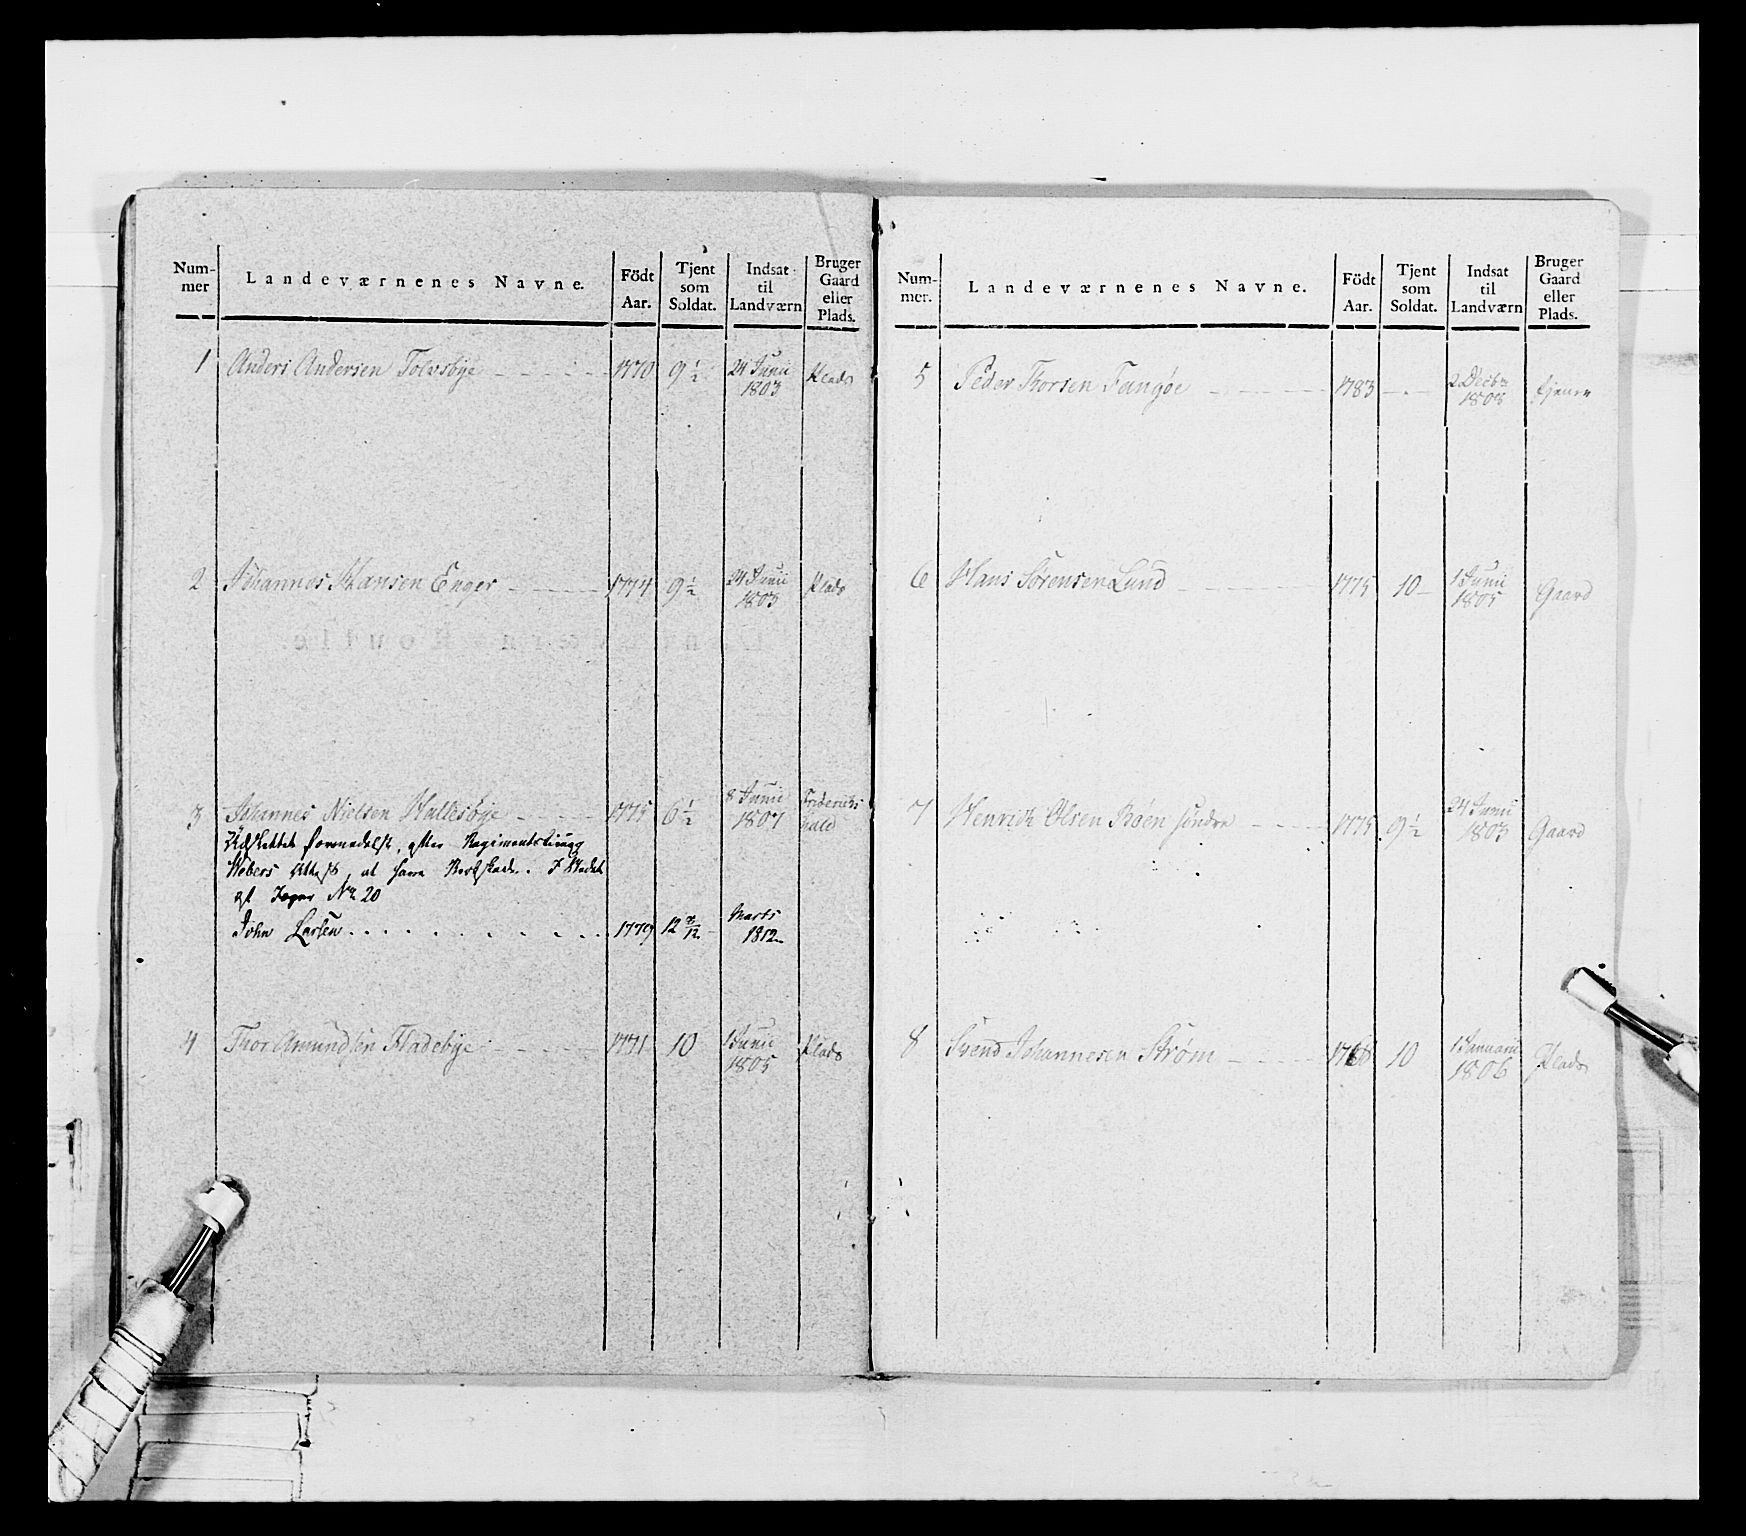 Num-
mer
Landeværnenes Navne.
Födt
Aar.
Tjent
som
Soldat.
Indsat
til
Landværn
Bruger
Gaard
eller
Plads.
1 Anders Andersen Tolvsbye 1770 9 1/2 24 Junii Plads
1803
2 Johannes Hansen Enger 1774 9 1/2 24 Junii Plads
1803
3 Johannes Nielsen Hallesbye 1775 6 1/2 8 Junii Friderichs
1807 hald
Udslettet formedelst, efter Regimentschirurg
Webers Attest, at have Brokskade. I Stedet
No 20
John Larsen 1779 12 Marts
1812
4 Thor Amundsen Fladebye 1771 10 1 Junii Plads
1805
Num-
mer.
Landeværnenes Navne.
Födt
Aar.
Tjent
som
Soldat.
Indsat
til
Landværn
Bruger
Gaard
eller
Plads.
5 Peder Thorsen Fangøe 1783 - 2 Decbr tjener
1803
6 Hans Sörensen Lund 1775 10 1 Junii Gaard
1805
7 Henrich Olsen Böen søndre 1775 9 1/2 24 Junii Gaard
1803
8 Svend Johannesen Strøm 10 1 Januarii Plads
1806